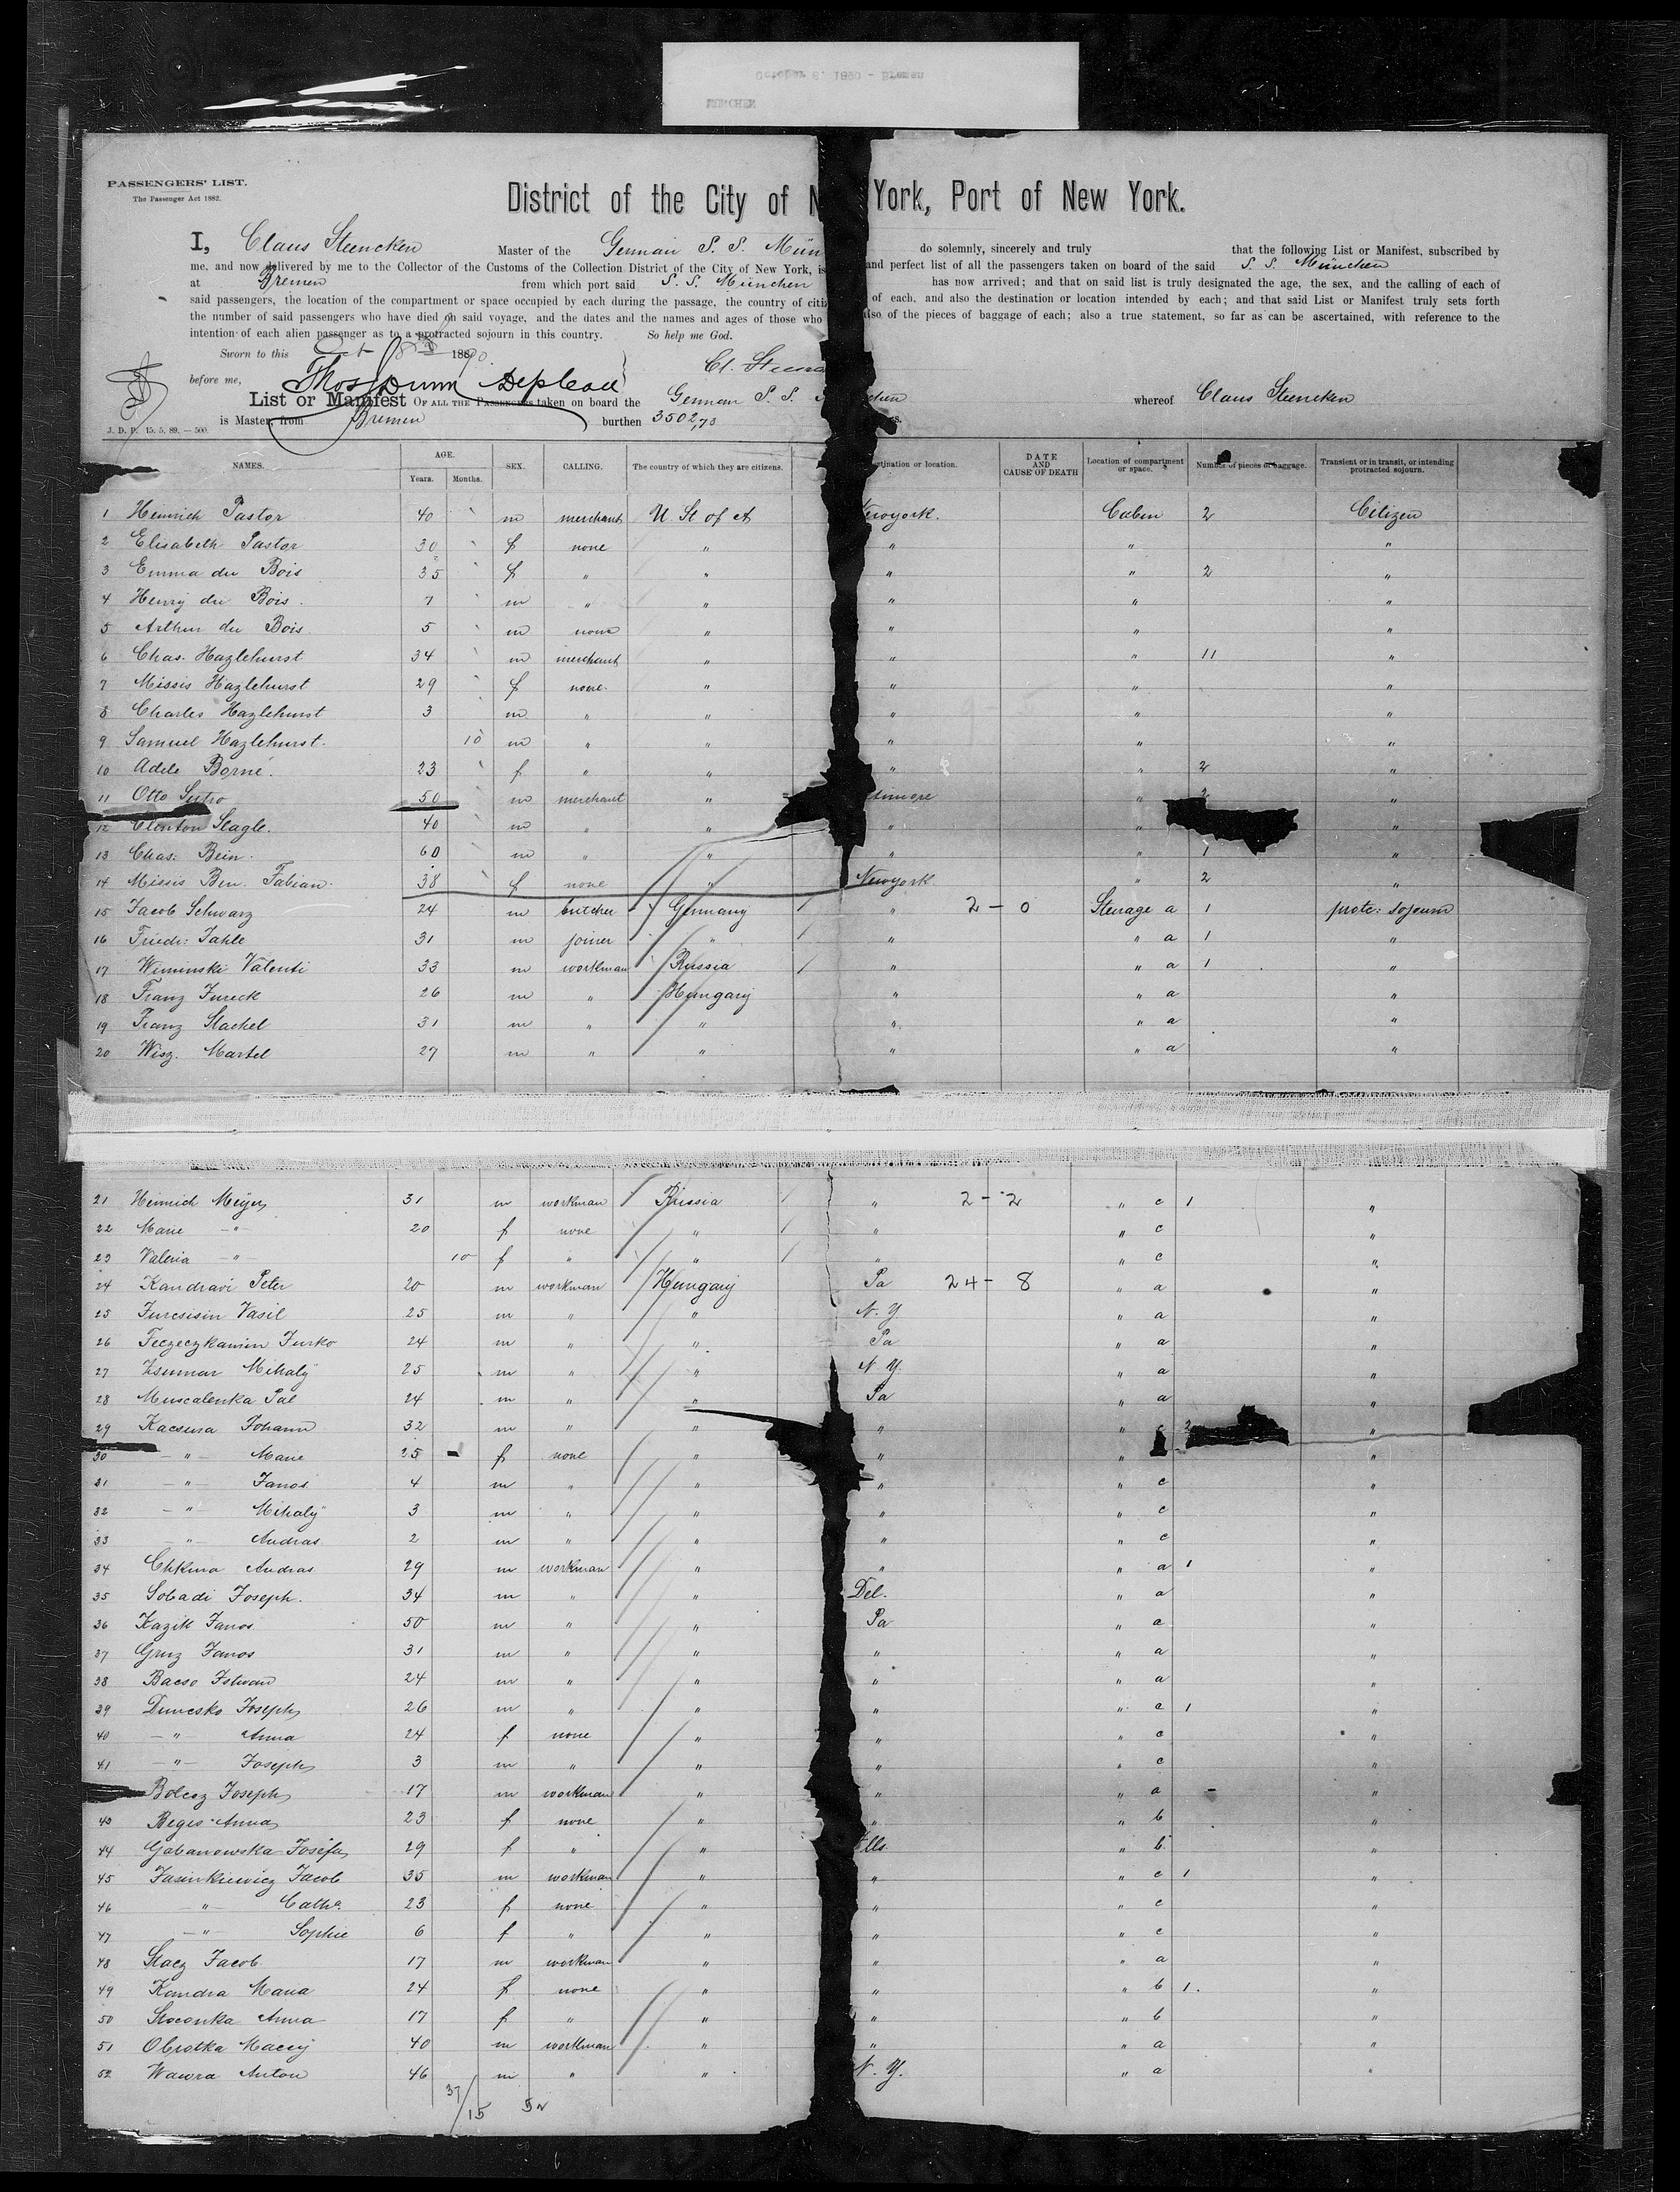 October 8' 1890 - Bremen
PASSENGERS' LIST.
The Passenger Act 1882.
District of the City of N York, Port of New York.
I, Claus Steencken Master of the German S. S. Mün do solemnly, sincerely and truly that the following List or Manifest, subscribed by
me, and now delivered by me to the Collector of the Customs of the Collection District of the City of New York, is and perfect list of all the passengers taken on board of the said S. S. München
at Bremen from which port said S. S. München has now arrived; and that on said list is truly designated the age, the sex, and the calling of each of
said passengers, the location of the compartment or space occupied by each during the passage, the country of citi of each, and also the destination or location intended by each; and that said List or Manifest truly sets forth
the number of said passengers who have died on said voyage, and the dates and the names and ages of those who also of the pieces of baggage of each; also a true statement, so far as can be ascertained, with reference to the
intention of each alien passenger as to a protracted sojourn in this country. So help me God.
Sworn to this Oct 8th 1890
before me, Thos Dunn Cl. Steen
List or Manifest OF ALL THE PASSENGERS taken on board the German S. S. chen whereof Claus Steencken
is Master, from Bremen burthen 3502,73
J. D. P. 15. 5. 89. — 500.
NAMES. AGE. Years. Months. SEX. CALLING. The country of which they are citizens. tination or location. DATE AND CAUSE OF DEATH Location of compartment or space. Number of pieces of baggage. Transient or in transit, or intending protracted sojourn.
1 Heinrich Pastor 40 m merchant U. St of A ewyork. Cabin 2 Citizen
2 Elisabeth Pastor 30 f none " " " "
3 Emma du Bois 35 f " " " " 2 "
4 Henry du Bois 7 m " " " " "
5 Arthur du Bois 5 m none " " " "
6 Chas. Hazlehurst 34 m merchant " " " 11 "
7 Missis Hazlehurst 29 f none " " " "
8 Charles Hazlehurst 3 m " " " " "
9 Samuel Hazlehurst. 10 m " " " " "
10 Adele Borné. 23 f " " " " 2 "
11 Otto Sutro 50 m merchant " timore " 2 "
12 Clinton Slagle. 40 m " " " " "
13 Chas: Bein. 60 m " " " " 1 "
14 Missis Ben. Fabian. 38 f none " Newyork " 2 "
15 Jacob Schwarz 24 m butcher Germany " 2 - 0 Steerage a 1 protr: sojourn
16 Friedr: Jahle 31 m joiner " " " a 1 "
17 Wiminski Valenti 33 m workman Russia " " a 1 "
18 Franz Jureck 26 m " Hungary " " a "
19 Franz Stachel 31 m " " " " a "
20 Wisz. Martel 27 m " " " " a "
21 Heinrich Meyer 31 m workman Russia " 2 - 2 " c 1 "
22 Marie - " - 20 f none " " " c "
23 Valeria - " - 10 f " " " " c "
24 Kandravi Peter 20 m workman Hungary Pa 24 - 8 " a "
25 Jurcsisin Vasil 25 m " " N. Y. " a "
26 Feczeczkanin Jurko 24 m " " Pa " a "
27 Zsumar Mihaly 25 m " " N. Y. " a "
28 Muscalenka Pal 24 m " " Pa " a "
29 Kacsura Johann 32 m " " " " c 2 "
30 - " - Marie 25 f none " " " "
31 - " - Janos 4 m " " " " c "
32 - " Mihaly 3 m " " " " c "
33 " Andras 2 m " " " " c "
34 Chkina Andras 29 m workman " " " a 1 "
35 Sobadi Joseph. 34 m " " Del. " a "
36 Kazik Janos 50 m " " Pa " a "
37 Gruz Janos 31 m " " " " a "
38 Bacso Istvan 24 m " " " " a "
39 Dunesko Joseph 26 m " " " " c 1 "
40 - " - Anna 24 f none " " " c "
41 - " - Joseph 3 m " " " " c "
Bolesz Joseph 17 m workman " " " a "
43 Reges Anna 23 f none " " " b "
44 Gabanowska Josefa 29 f " " Ills. " b "
45 Jasinkiewicz Jacob 35 m workman " " " c 1 "
46 - " - Catha 23 f none " " " c "
47 - " - Sophie 6 f " " " " c "
48 Stacz Jacob 17 m workman " " " a "
49 Kandra Maria 24 f none " " " b 1. "
50 Stoconka Anna 17 f " " " " b "
51 Obrotka Maciej 40 m workman " " " a "
52 Wawra Anton 46 m " " N. Y. " a "
37/15 52